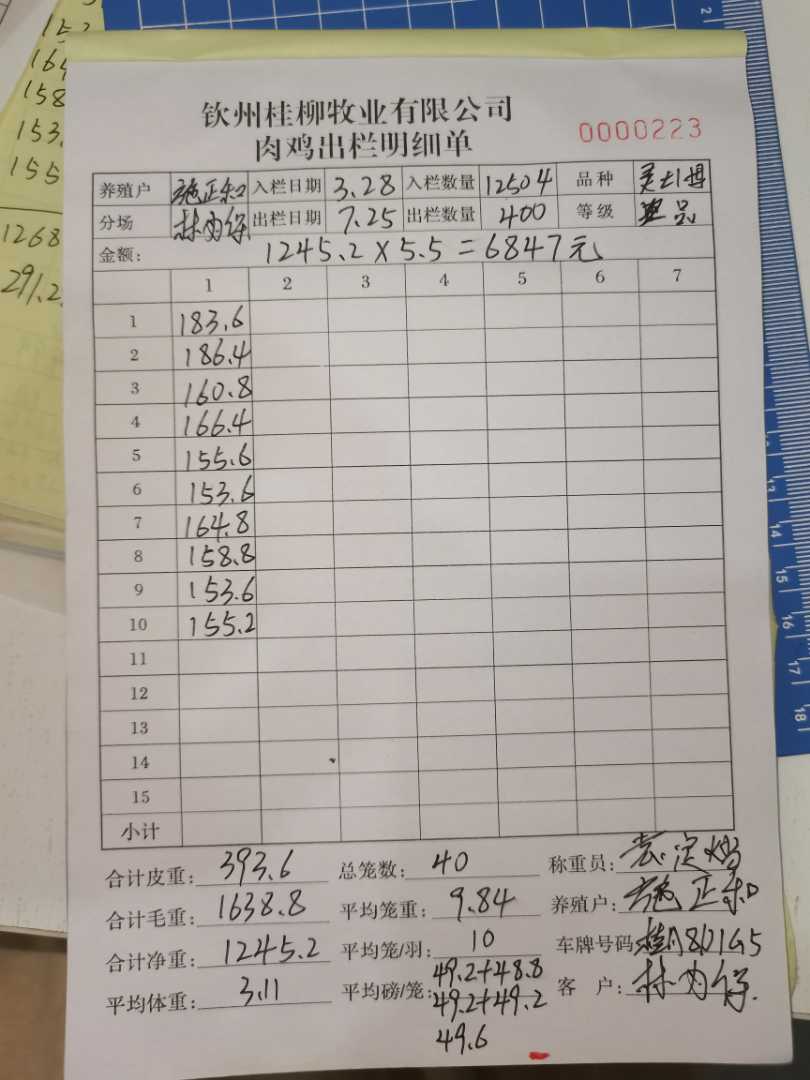 15
164
158
153.
155
1268
291.2
钦州桂柳牧业有限公司
肉鸡出栏明细单
0000223
养殖户 施正和 入栏日期 3.28 入栏数量 12504 品种
分场 出栏日期 7.25 出栏数量 400 等级 品
金额: 1245.2×5.5=6847元
1 2 3 4 5 6 7
1 183.6
2 186.4
3 160.8
4 166.4
5 155.6
6 153.6
7 164.8
8 158.8
9 153.6
10 155.2
11
12
13
14
15
小计
合计皮重: 393.6 总笼数: 40 称重员:
合计毛重: 1638.8 平均笼重: 9.84 养殖户: 施正和
合计净重: 1245.2 平均笼/羽: 10 车牌号码
平均体重: 3.11 平均磅/笼: 49.2+48.8 客 户:
49.2+49.2
49.6
2
13
14
15
16
17
18